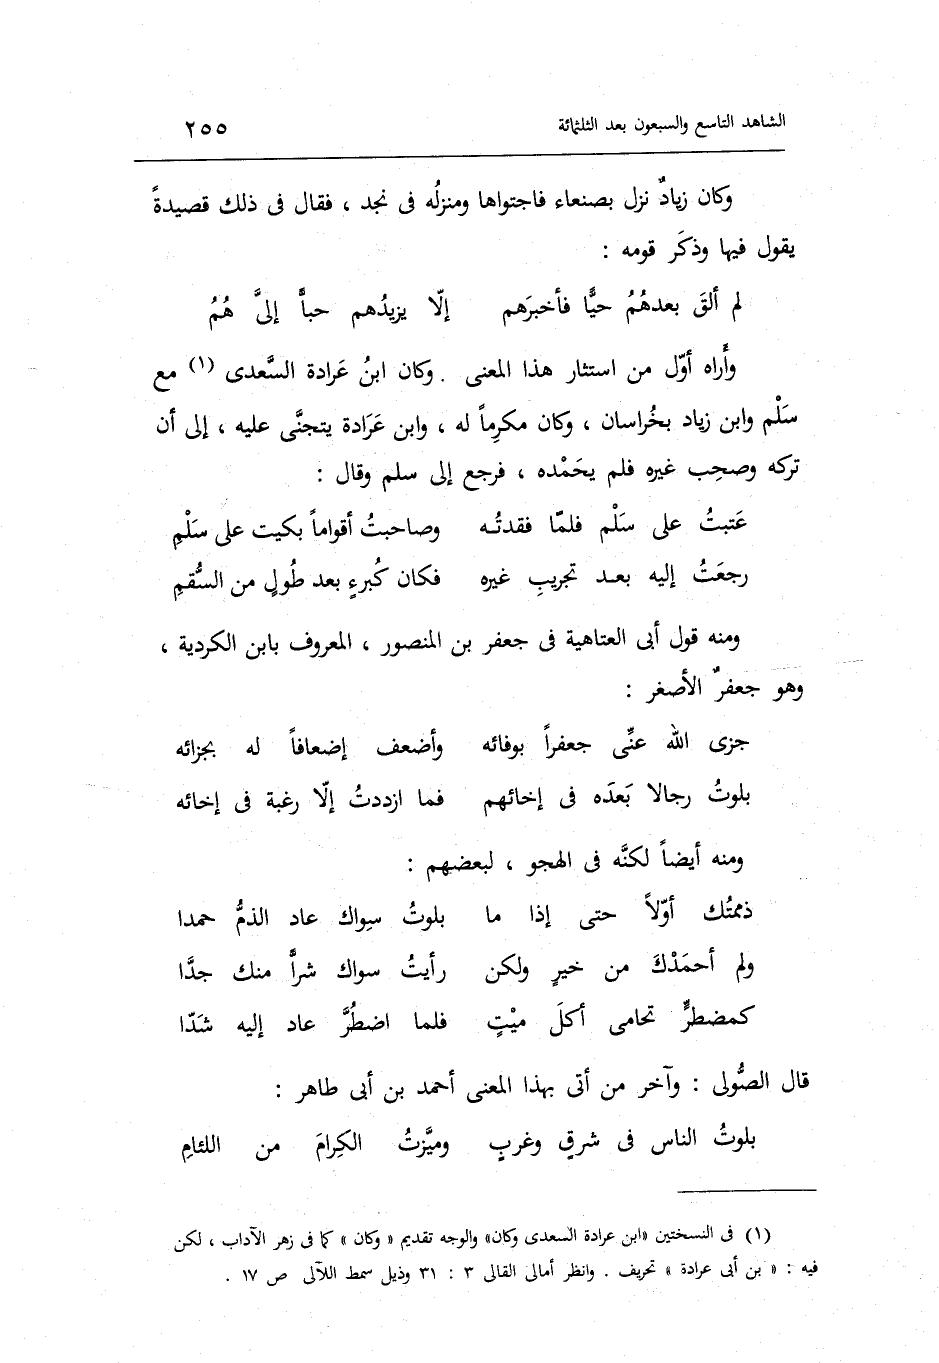 الشاهد التاسع والسبعون بعد الثلثمائة ٢٥٥
وكان زيادٌ نزل بصنعاء فاجتواها ومنزلُه فى نجد ، فقال فى ذلك قصيدةً
يقول فيها وذكَر قومه :
لم ألقَ بعدهُمُ حيًّا فأخبرَهم إلّا يزيدُهم حباًّ إلىَّ هُمُ
وأُراه أوّل من استثار هذا المعنى . وكان ابنُ عَرادة السَّعدى (١) مع
سَلْم وابن زياد بخُراسان ، وكان مكرِماً له ، وابن عَرَادة يتجنَّى عليه ، إلى أن
تركه وصحِب غيره فلم يحَمْده ، فرجع إلى سلم وقال :
عَتبتُ على سَلْم فلمّا فقدتُـه وصاحبتُ أقواماً بكيت على سَلْمِ
رجعَتُ إليه بعـد تجريبِ غيره فكان كُبرءٍ بعد طُولٍ من السُّقمِ
ومنه قول أبى العتاهية فى جعفر بن المنصور ، المعروف بابن الكردية ،
وهو جعفرٌ الأصغر :
جزى الله عنِّى جعفراً بوفائه وأضعف إضعافاً له بجزائه
بلوتُ رجالا بَعدَه فى إخائهم فما ازددتُ إلّا رغبة فى إخائه
ومنه أيضاً لكنَّه فى الهجو ، لبعضهم :
ذممتُك أوّلاً حتى إذا ما بلوتُ سِواك عاد الذمُّ حمدا
ولم أحمَدْكَ من خيرٍ ولكن رأيتُ سواك شراًّ منك جدَّا
كمضطرٍّ تحامى أكلَ ميْتٍ فلما اضطُرَّ عاد إليه شَدّا
قال الصُّولى : وآخر من أتى بهذا المعنى أحمد بن أبى طاهر :
بلوتُ الناس فى شرقٍ وغربٍ وميَّزتُ الكِرامَ من اللئامِ
(١) فى النسختين «ابن عرادة السعدى وكان» والوجه تقديم « وكان » كما فى زهر الآداب ، لكن
فيه : « بن أبى عرادة » تحريف . وانظر أمالى القالى ٣ : ٣١ وذيل سمط اللآلى ص ١٧ .